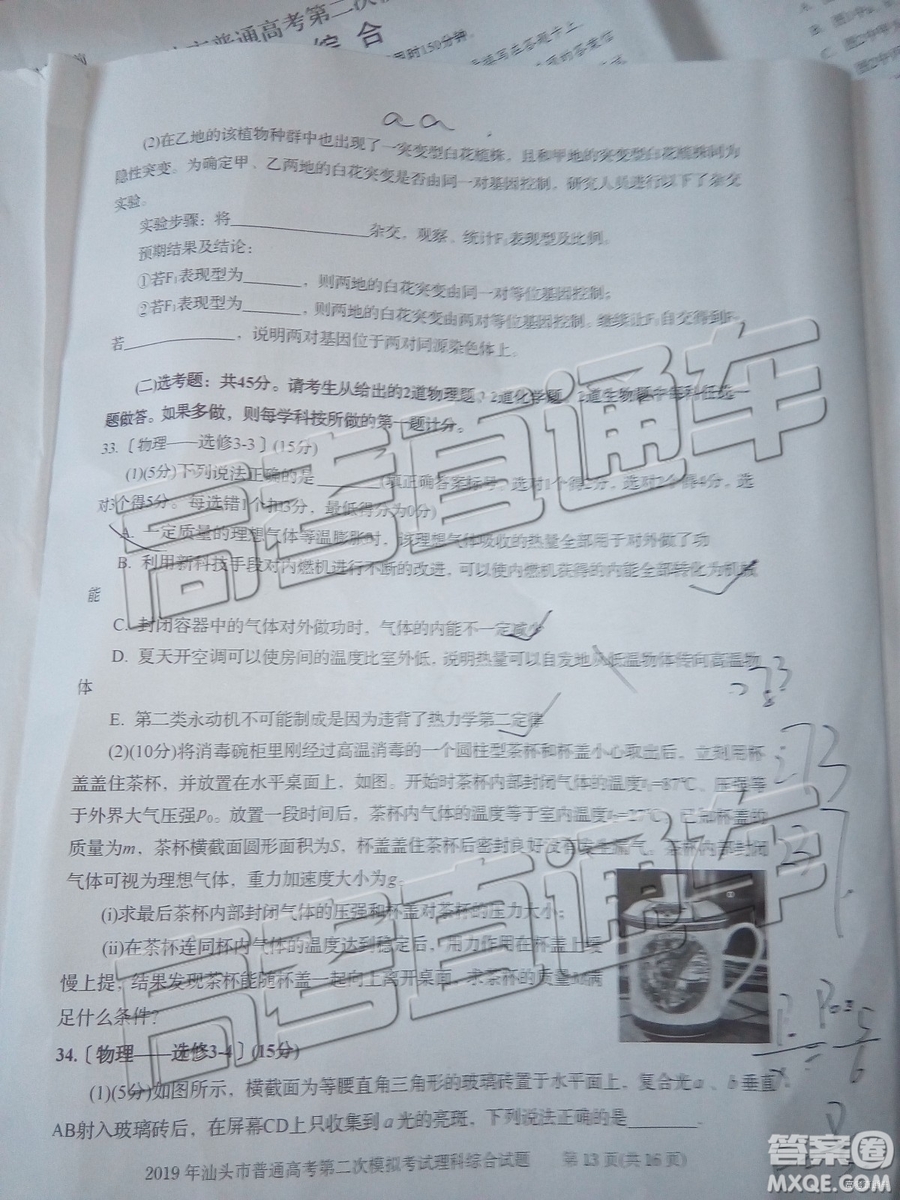 市普通高考第二次
综 合
用时150分钟
aa
(2)在乙地的该植物种群中也出现了一突变型白花植株，且和甲地的突变型白花植株同为
隐性突变。为确定甲、乙两地的白花突变是否由同一对基因控制，研究人员进行以下了杂交
实验。
实验步骤：将____________杂交，观察、统计F₁表现型及比例。
预期结果及结论：
①若F₁表现型为______，则两地的白花突变由同一对等位基因控制；
②若F₁表现型为______，则两地的白花突变由两对等位基因控制。继续让F₁自交得到F₂
若__________，说明两对基因位于两对同源染色体上。
(二)选考题：共45分。请考生从给出的2道物理题、2道化学题、2道生物题中每科任选一
题做答。如果多做，则每学科按所做的第一题计分。
33.〔物理——选修3-3〕(15分)
(1)(5分)下列说法正确的是______(填正确答案标号。选对1个得2分，选对2个得4分，选
对3个得5分。每选错1个扣3分，最低得分为0分)
A. 一定质量的理想气体等温膨胀时，该理想气体吸收的热量全部用于对外做了功
B. 利用新科技手段对内燃机进行不断的改进，可以使内燃机获得的内能全部转化为机械
能
C. 封闭容器中的气体对外做功时，气体的内能不一定减少
D. 夏天开空调可以使房间的温度比室外低，说明热量可以自发地从低温物体传向高温物
体
E. 第二类永动机不可能制成是因为违背了热力学第二定律
(2)(10分)将消毒碗柜里刚经过高温消毒的一个圆柱型茶杯和杯盖小心取出后，立刻用杯
盖盖住茶杯，并放置在水平桌面上，如图。开始时茶杯内部封闭气体的温度t₁=87℃、压强等
于外界大气压强p₀。放置一段时间后，茶杯内气体的温度等于室内温度t₂=27℃。已知杯盖的
质量为m，茶杯横截面圆形面积为S，杯盖盖住茶杯后密封良好没有发生漏气。茶杯内部封闭
气体可视为理想气体，重力加速度大小为g。
(i)求最后茶杯内部封闭气体的压强和杯盖对茶杯的压力大小；
(ii)在茶杯连同杯内气体的温度达到稳定后，用力作用在杯盖上缓
慢上提，结果发现茶杯能随杯盖一起向上离开桌面，求茶杯的质量M满
足什么条件？
34.〔物理——选修3-4〕(15分)
(1)(5分)如图所示，横截面为等腰直角三角形的玻璃砖置于水平面上，复合光a、b垂直
AB射入玻璃砖后，在屏幕CD上只收集到a光的亮斑，下列说法正确的是______.
2019年汕头市普通高考第二次模拟考试理科综合试题 第13页(共16页)
高考直通车
高考直通车
273
答案圈